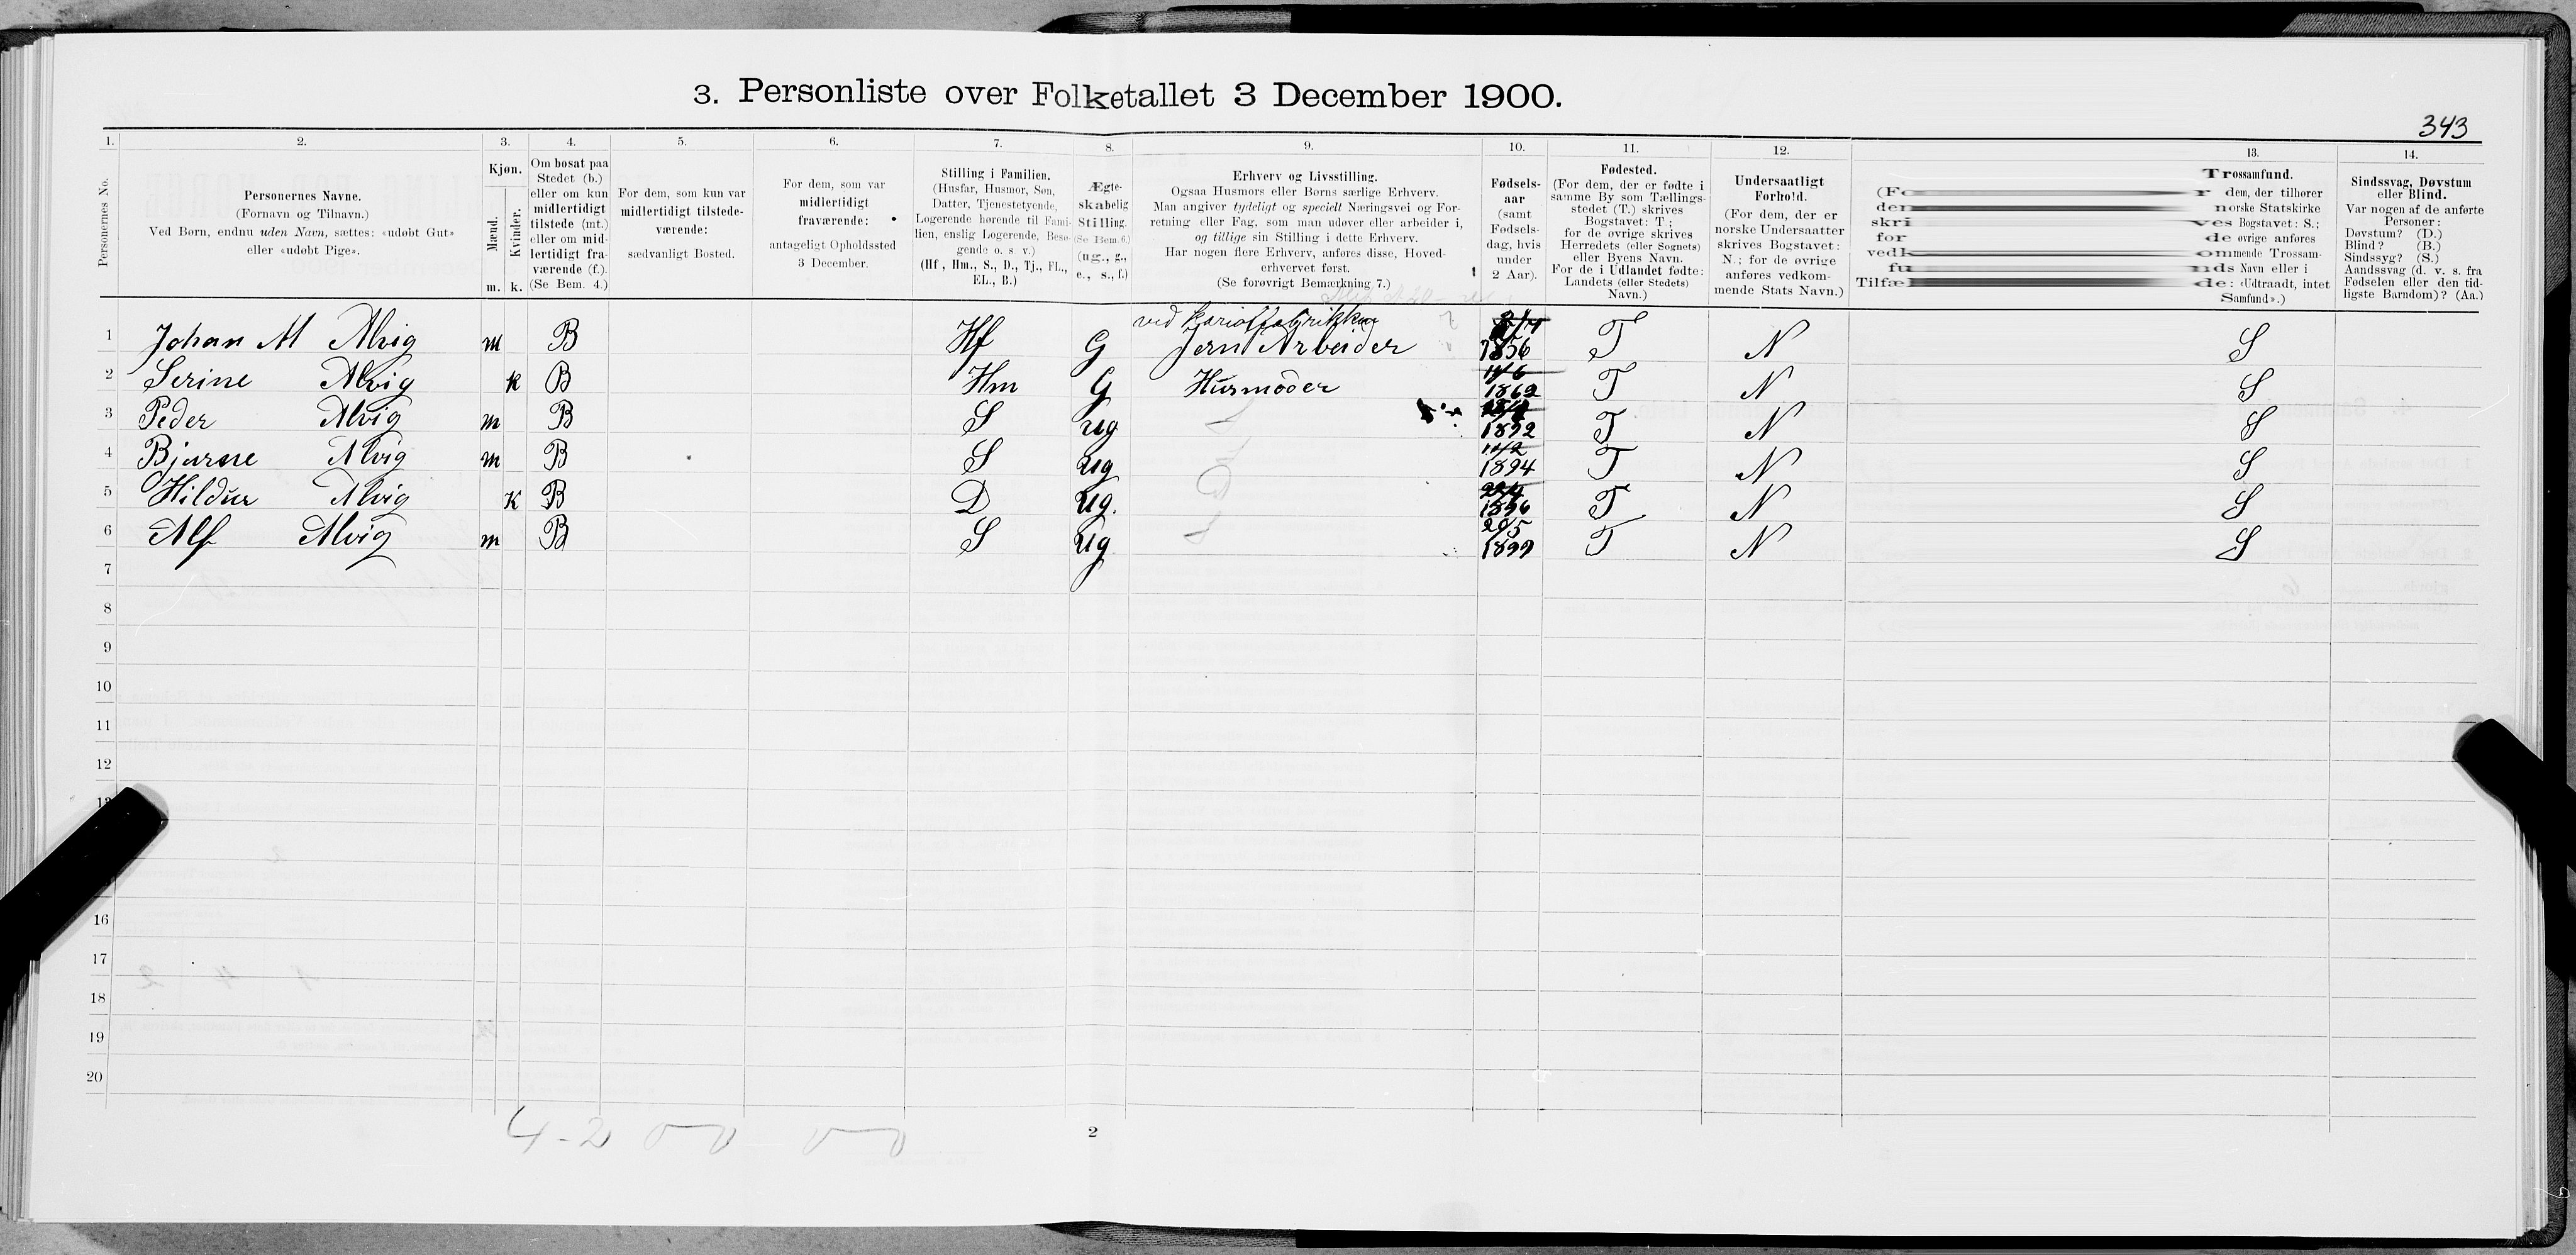 3. Personliste over Folketallet 3 December 1900.
343
1. 2. 3. 4. 5. 6. 7. 8. 9. 10. 11. 12. 13. 14.
Personernes No.
Personernes Navne.
(Fornavn og Tilnavn.)
Ved Børn, endnu uden Navn, sættes: «udøbt Gut»
eller «udøbt Pige».
Kjøn.
Mænd.
Kvinder.
m. k.
Om bosat paa
Stedet (b.)
eller om kun
midlertidigt
tilstede (mt.)
eller om mid-
lertidigt fra-
værende (f.).
(Se Bem. 4.)
For dem, som kun var
midlertidigt tilstede-
værende:
sædvanligt Bosted.
For dem, som var
midlertidigt
fraværende:
antageligt Opholdssted
3 December.
Stilling i Familien.
(Husfar, Husmor, Søn,
Datter, Tjenestetyende,
Logerende hørende til Fami-
lien, enslig Logerende, Besø-
gende o. s. v.)
(Hf., Hm., S., D., Tj., FL.,
EL., B.)
Ægte-
skabelig
Stilling.
(Se Bem. 6.)
(ug., g.,
e., s., f.)
Erhverv og Livsstilling.
Ogsaa Husmors eller Børns særlige Erhverv.
Man angiver tydeligt og specielt Næringsvei og For-
retning eller Fag, som man udøver eller arbeider i,
og tillige sin Stilling i dette Erhverv.
Har nogen flere Erhverv, anføres disse, Hoved-
erhvervet først.
(Se forøvrigt Bemærkning 7.)
Fødsels-
aar
(samt
Fødsels-
dag, hvis
under
2 Aar).
Fødested.
(For dem, der er fødte i
samme By som Tællings-
stedet (T.) skrives
Bogstavet: T;
for de øvrige skrives
Herredets (eller Sognets)
eller Byens Navn.
For de i Udlandet fødte:
Landets (eller Stedets)
Navn.)
Undersaatligt
Forhold.
(For dem, der er
norske Undersaatter
skrives Bogstavet:
N.; for de øvrige
anføres vedkom-
mende Stats Navn.)
Trossamfund.
(For dem, der tilhører
den norske Statskirke
skrives Bogstavet: S.;
for de øvrige anføres
vedkommende Trossam-
funds Navn eller i
Tilfælde: «Udtraadt, intet
Samfund».)
Sindssvag, Døvstum
eller Blind.
Var nogen af de anførte
Personer:
Døvstum? (D.)
Blind? (B.)
Sindssyg? (S.)
Aandssvag (d. v. s. fra
Fødselen eller den tid-
ligste Barndom)? (Aa.)
ved
1 Johan M Alvig m B Hf G Jern Arbeider 1856 T N S
2 Serine Alvig k B Hm G Husmoder 11/6 1862 T N S
3 Peder Alvig m B S ug 1892 T N S
4 Bjarne Alvig m B S ug 1894 T N S
5 Hildur Alvig K B D ug. 1896 T N S
6 Alf Alvig m B S ug 1899 T N S
7
8
9
10
11
12
13
16
17
18
19
20
4-2
2